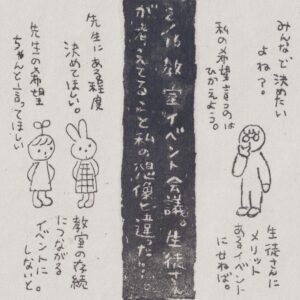 みんなで決めたい
よね?。
私の希望言うのは
ひかえよう。
生徒さんに
メリット
あるイベント
にせねば。
文化教室イベント会議。生徒さん
が考えてること私の想像と違った…。
先生にある程度
決めてほしい。
先生の希望
ちゃんと言ってほしい
教室の存続
につながる
イベントに
しないと。